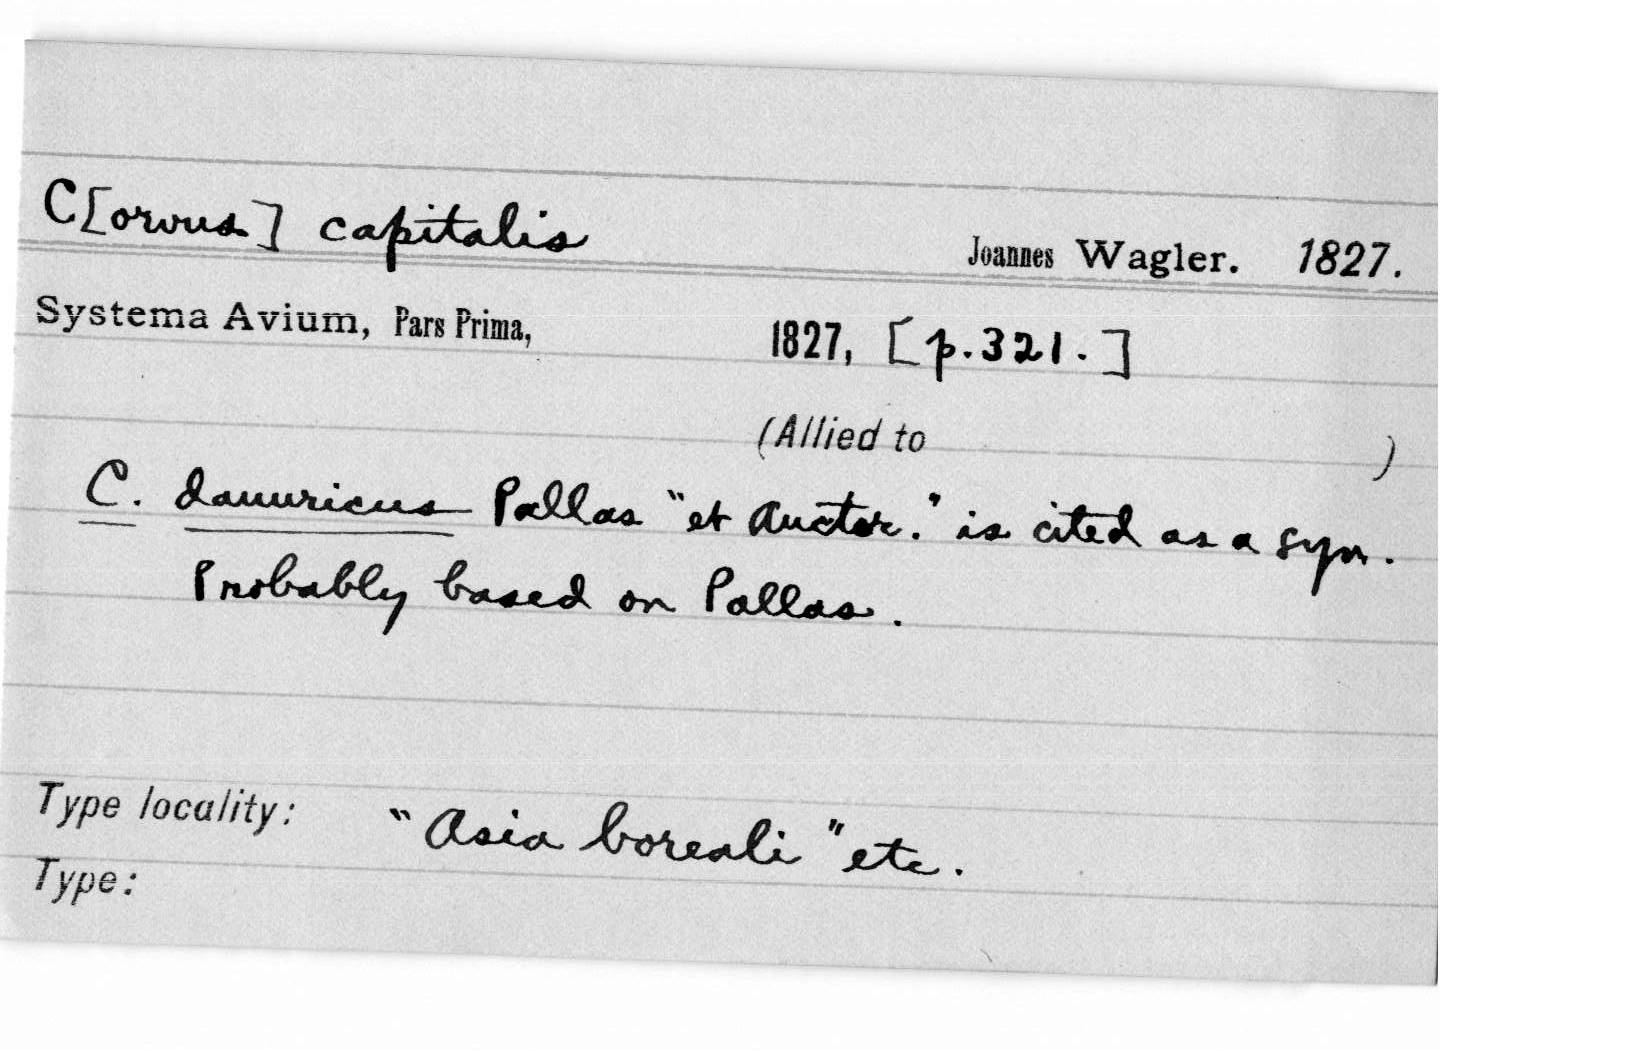 C[orvus] capitalis Joannes Wagler. 1827.
Systema Avium, Pars Prima, 1827, [p.321.]
(Allied to )
C. dauuricus Pallas "et Auctor." is cited as a syn.
Probably based on Pallas.
Type locality: "Asia boreali" etc.
Type: